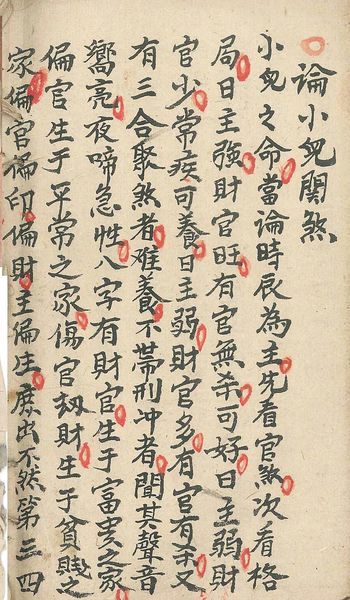 論小兒関煞
小兒之命當論時辰為主先看官煞次看格
局日主強財官旺有官無杀可好日主弱財
官少常疾可養日主弱財官多有官有杀又
有三合聚煞者难養不帶刑冲者聞其聲音
嚮亮夜啼急性八字有財官生于富贵之家
偏官生于平常之家傷官刼財生于貧賤之
家偏官偏印偏財主偏生庶出不然第三四